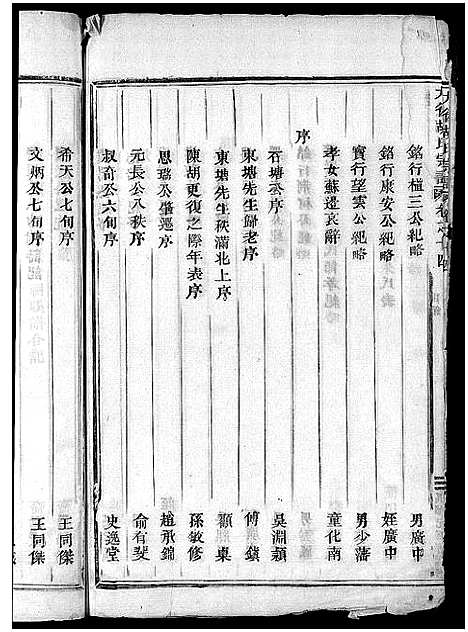 銘行植三公紀略 男廣中
銘行康安公紀略 姪廣中
實行望雲公紀略 男少藩
孝女蘇遺哀辭 童化南
序
石塘公序 吳淵穎
東塘先生歸老序 傅與礪
東塘先生秩滿北上序 顧東
陳胡更復之際年表序 孫敏修
恩瑞公肇遷序 趙承錦
元長公八秩序 俞有斐
叔奇公六旬序 史逸堂
希天公七旬序 王同傑
文炳公七旬序 王同傑